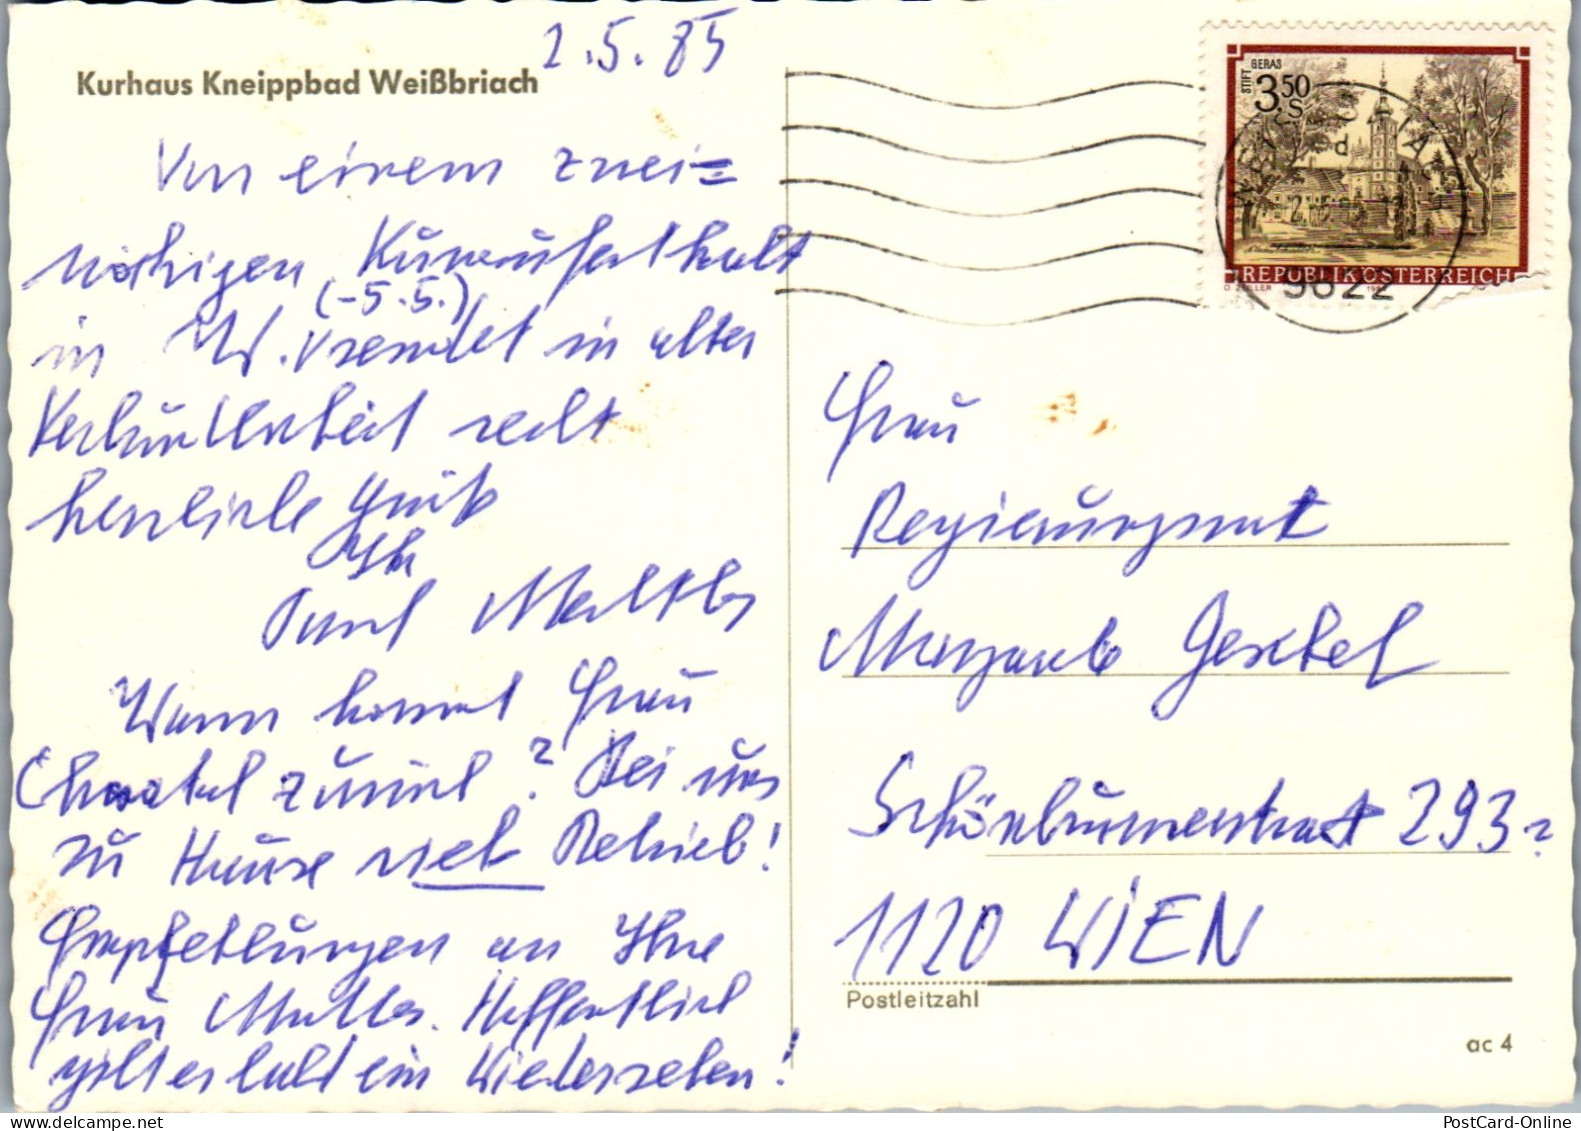 2.5.85
Kurhaus Kneippbad Weißbriach
Von einem zwei=
wöchigen Kuraufenthalt
(-5.5.)
in W. sendet in alter
Verbundenheit recht
herzliche Grüße
Ihr
Wann kommt Frau
zurück? Bei uns
zu Hause viel Betrieb!
Empfehlungen an Ihre
Frau Mutter. Hoffentlich
gibt es bald ein Wiedersehen!
STIFT GERAS
3.50
S
REPUBLIK ÖSTERREICH
9622
Frau
Regierungsrat
Schönbrunnerstraße 293
1120 WIEN
Postleitzahl
ac 4
PostCard-Online